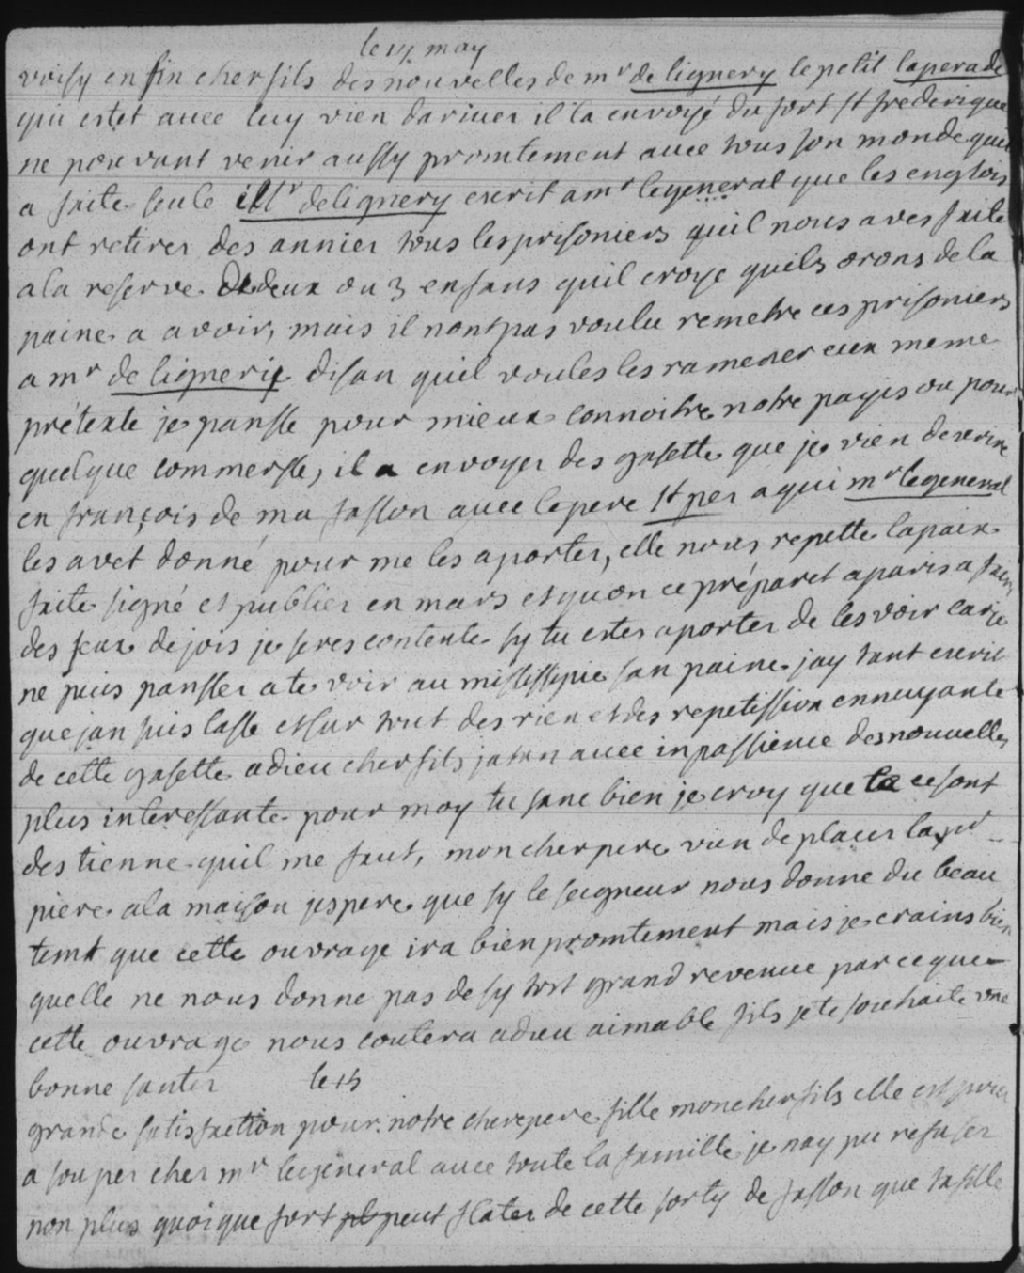 le 14 may
voisy enfin cher fils des nouvelles de mr de lignery le petit laperade
qui estet avec luy vien dariver il la envoyé du fort st frederique
ne pouvant venir aussy promtement avec tous son monde quil
a faite seule mr delignery escrit a mr legeneral que les englois
ont retirer des annier tous les prisoniers quil nous aves faite
a la reserve de deux ou 3 enfans quil croye quils orons de la
paine a avoir, mais il nont pas voulu remetre ces prisoniers
a mr de lignerie disan quil voules les ramener eux meme
prétexte je pansse pour mieux connoitre notre payis ou pour
quelque commersse, il a envoyer des gasette que je vien descrire
en françois de ma fasson avec le pere st per a qui mr le general
les avet donné pour me les aporter, elle nous repette la paix
faite signé et publier en mars et quon ce préparet a paris a faire
des feux de jois je seres contente sy tu estes aporter de les voir car je
ne puis pansser a te voir au missisipie san paine jay tant escrit
que jan suis lasse et sur tout des rien et des repetission ennuyante
de cette gasette adieu cher fils jatan avec inpassience des nouvelles
plus interessante pour moy tu sane bien je croy que ce sont
des tienne quil me faut, mon cher pere vien de placer la pr
piere a la maison jespere que sy le seigneur nous donne du beau
temt que cette ouvrage ira bien promtement mais je crains bien
quelle ne nous donne pas de sy tost grand revenue par ce que
cette ouvrage nous coutera adieu aimable fils je te souhaite une
bonne santer le 15
grande satisfaction pour notre cherepere fille mon cher fils elle est priee
a souper cher mr le general avec toute la famille je nay pu refuser
non plus quoique fort peut flater de cette sorty de fasson que ta fille